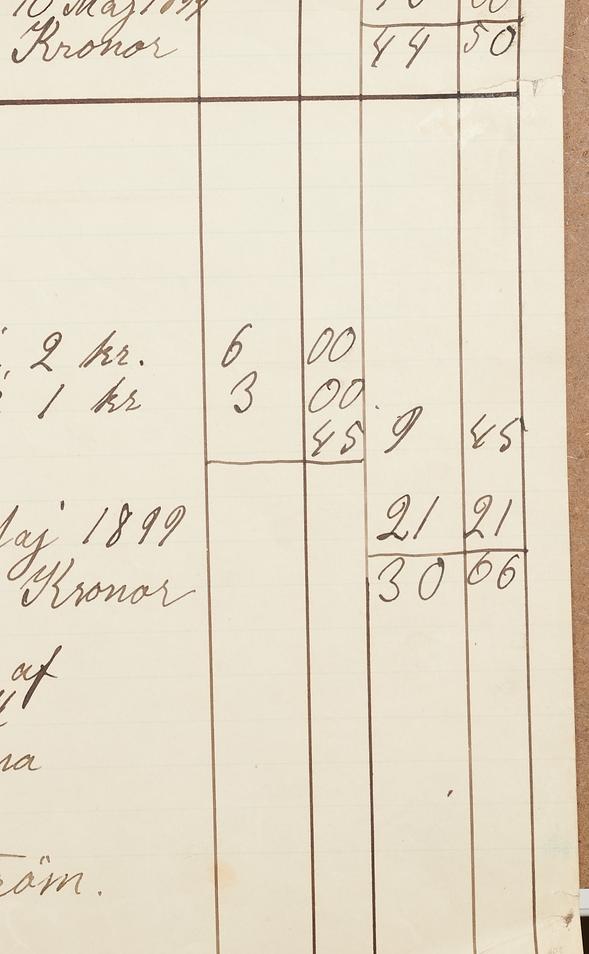 10 Maj 1899
Kronor 44 50
2 kr. 6 00
1 kr 3 00
45 9 45
Maj 1899 21 21
Kronor 30 66
af